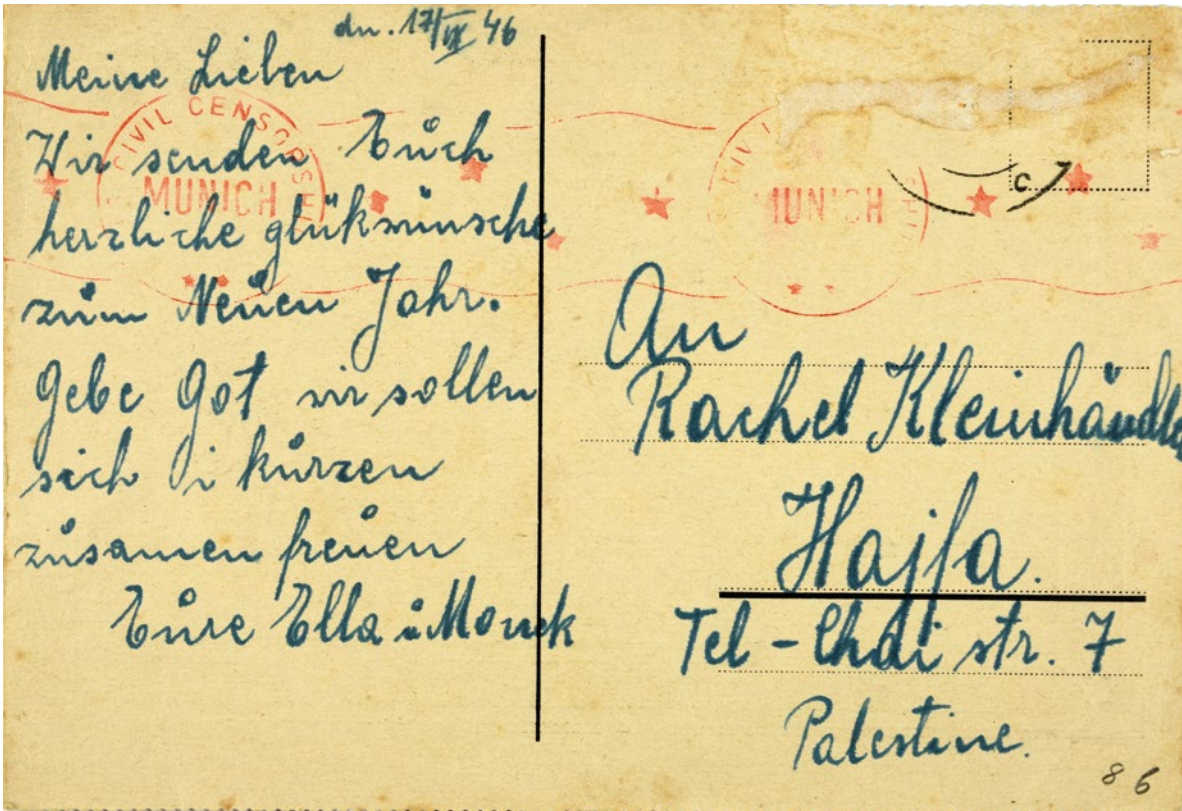 dn. 17/IX 46
Meine Lieben
Wir senden Euch
herzliche glükwünsche
zum Neuen Jahr.
Gebe Got wir sollen
sich i kurzen
zusamen freuen
Eure Ella u Monek
CIVIL CENSORSHIP
MUNICH
CIVIL
MUNICH
C
An
Rachel Kleinhändle
Hajfa.
Tel-Chai str. 7
Palestine.
86